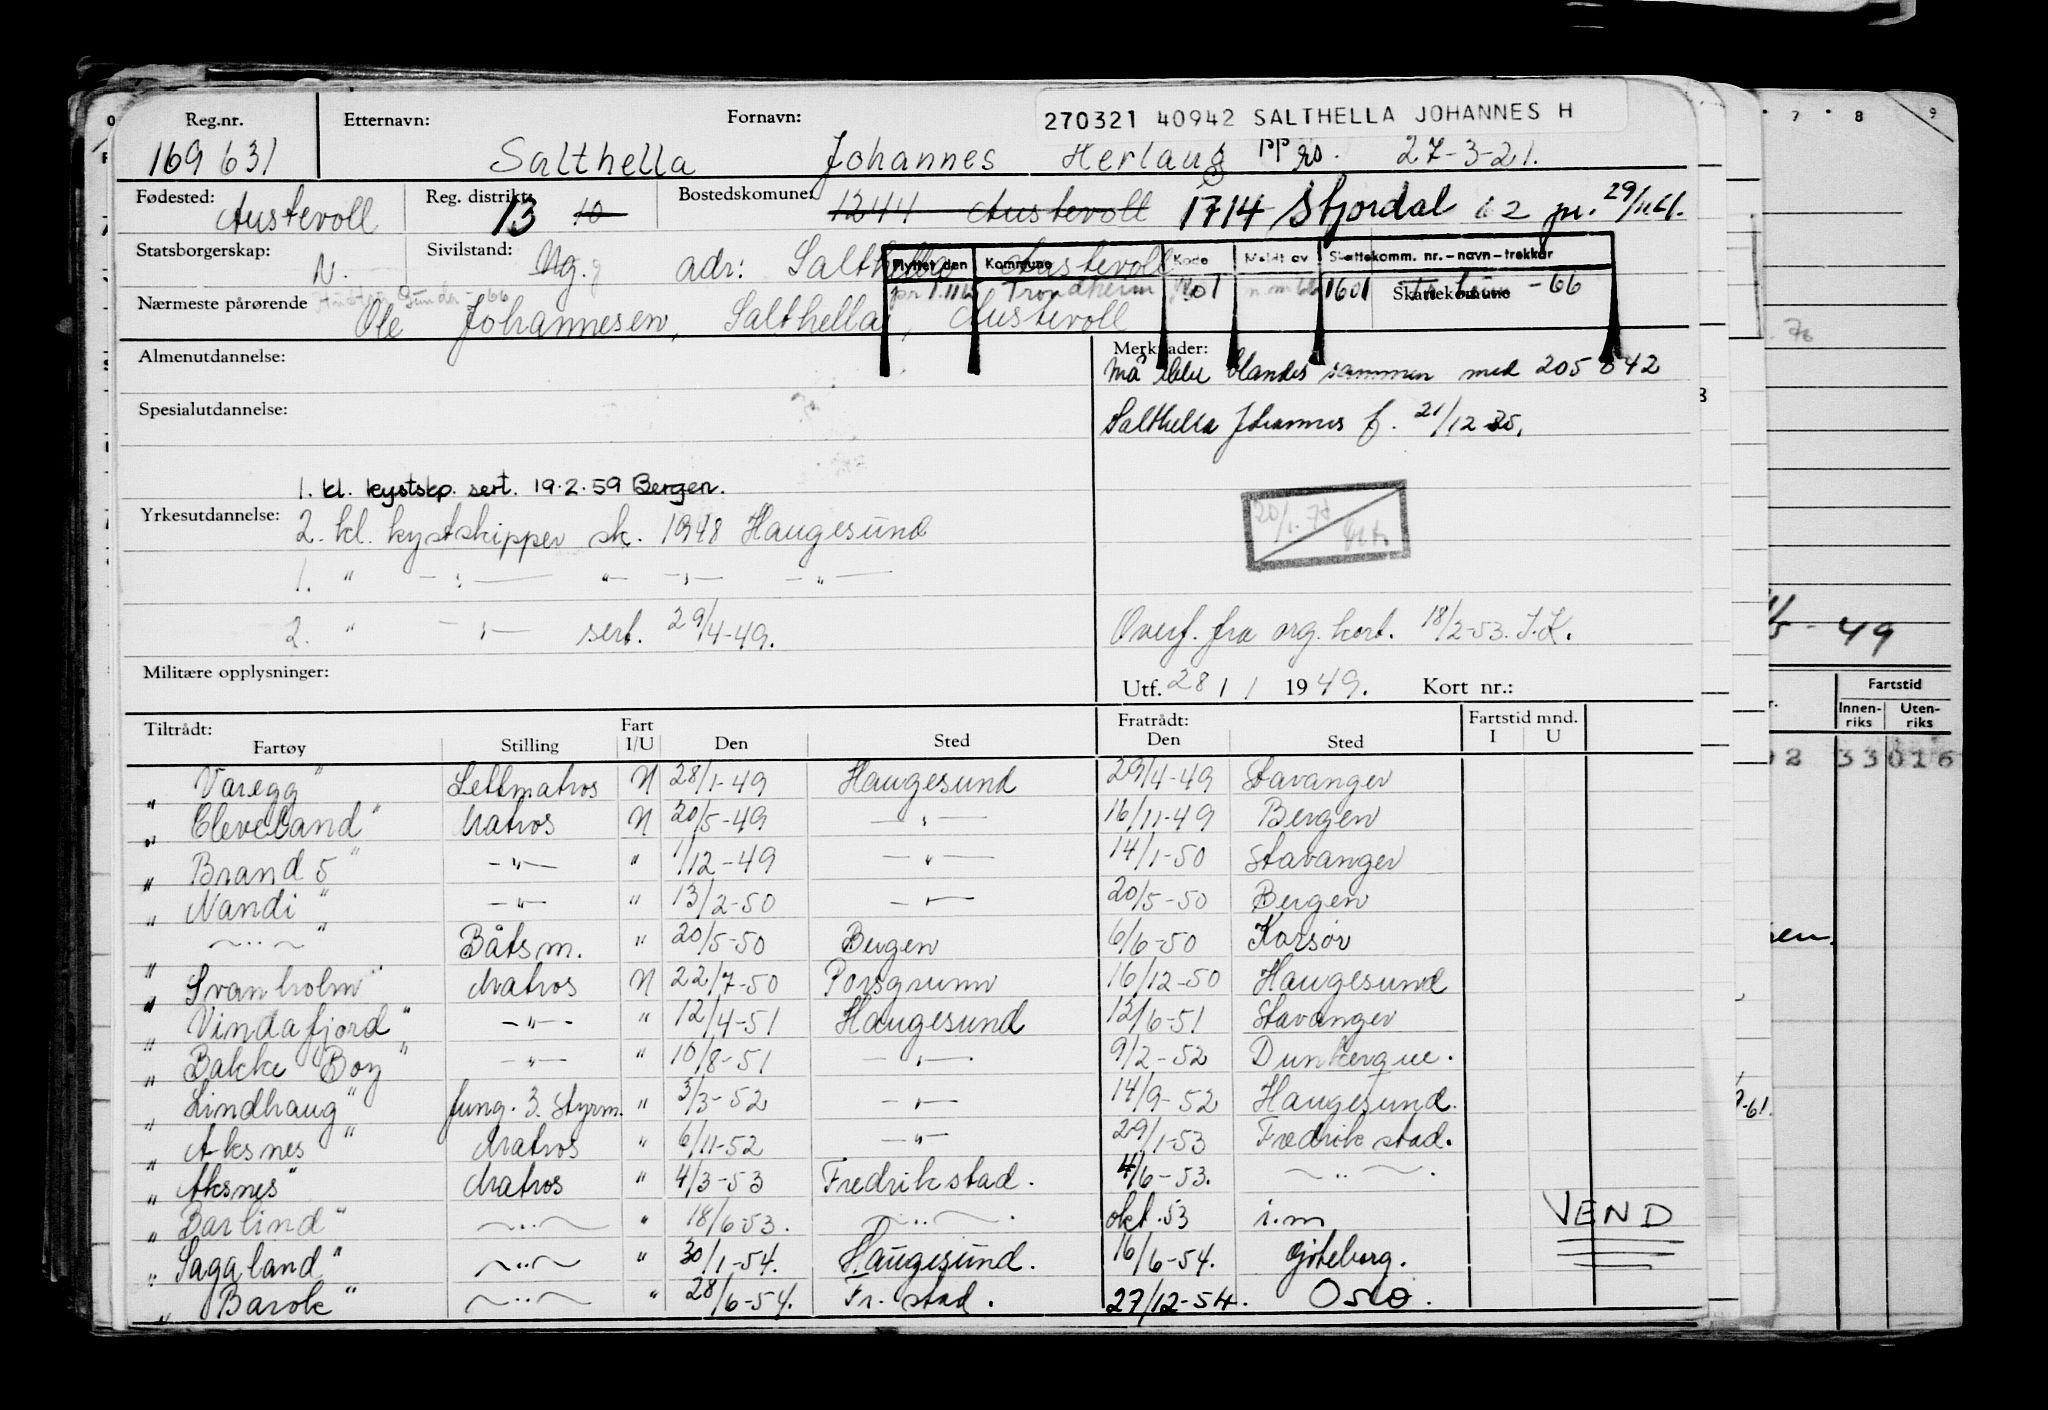 270321 40942 SALTHELLA JOHANNES H
Reg.nr. Etternavn: Fornavn:
169 631 Salthella Johannes Herlaug 27-3-21.
Fødested: Reg. distrikt: Bostedskomune:
Austevoll 13 10 1244 Austevoll 1714 Stjørdal
Statsborgerskap: Sivilstand:
N. Ug. adr: Salthella Austevoll
Flyttet den Kommune Kode Meldt av Skattekomm. nr.-navn-trekkår
Trondheim 1601 -66
Nærmeste pårørende Skattekomune
Ole Johannesen, Salthella, Austevoll
Almenutdannelse: Merknader:
må ikke blandes sammen med 205 842
Spesialutdannelse:
Salthella Johannes f. 21/12
1. kl. kystskp. sert. 19.2.59 Bergen.
Yrkesutdannelse:
2. kl. kystskipper sk. 1948 Haugesund
1. " — " — " — " — — " —
2. " — " — sert. 29/4-49.
Overf. fra org. kort. 18/2-53. J.K.
Militære opplysninger:
Utf. 28 / 1 1949. Kort nr.:
Tiltrådt: Fratrådt: Fartstid mnd.
Fartøy Stilling Fart I/U Den Sted Den Sted I U
" Varegg" Lettmatros N 28/1-49 Haugesund 29/4-49 Stavanger
" Cleveland" Matros N 20/5-49 — " — 16/11-49 Bergen
" Brand 5" — " — " 1/12-49 — " — 14/1-50 Stavanger
" Nandi" — " — " 13/2-50 — " — 20/5-50 Bergen
" — " — " Båtsm. " 20/5-50 Bergen 6/6-50 Korsør
" Svanholm" Matros N 22/7-50 Porsgrunn 16/12-50 Haugesund
" Vindafjord" — " — " 12/4-51 Haugesund 12/6-51 Stavanger
" Bakke Boy" — " — " 10/8-51 — " — 9/2-52 Dunkerque.
" Lindhaug" fung. 3. styrm. " 3/3-52 — " — 14/9-52 Haugesund.
" Aksnes" Matros " 6/11-52 — " — 29/1-53 Fredrikstad.
" Aksnes" Matros " 4/3-53 Fredrikstad. 4/6-53. — " — .
" Barlind" — " — " 18/6-53. — " — . okt.53 i.m
VEND
" Sagaland" — " — " 30/1-54. Haugesund. 16/6-54. Gøteborg.
" Barok" — " — " 28/6-54. Fr.stad. 27/12-54. Oslo.
7 8 9
49
Fartstid
Innenriks Utenriks
2 33016